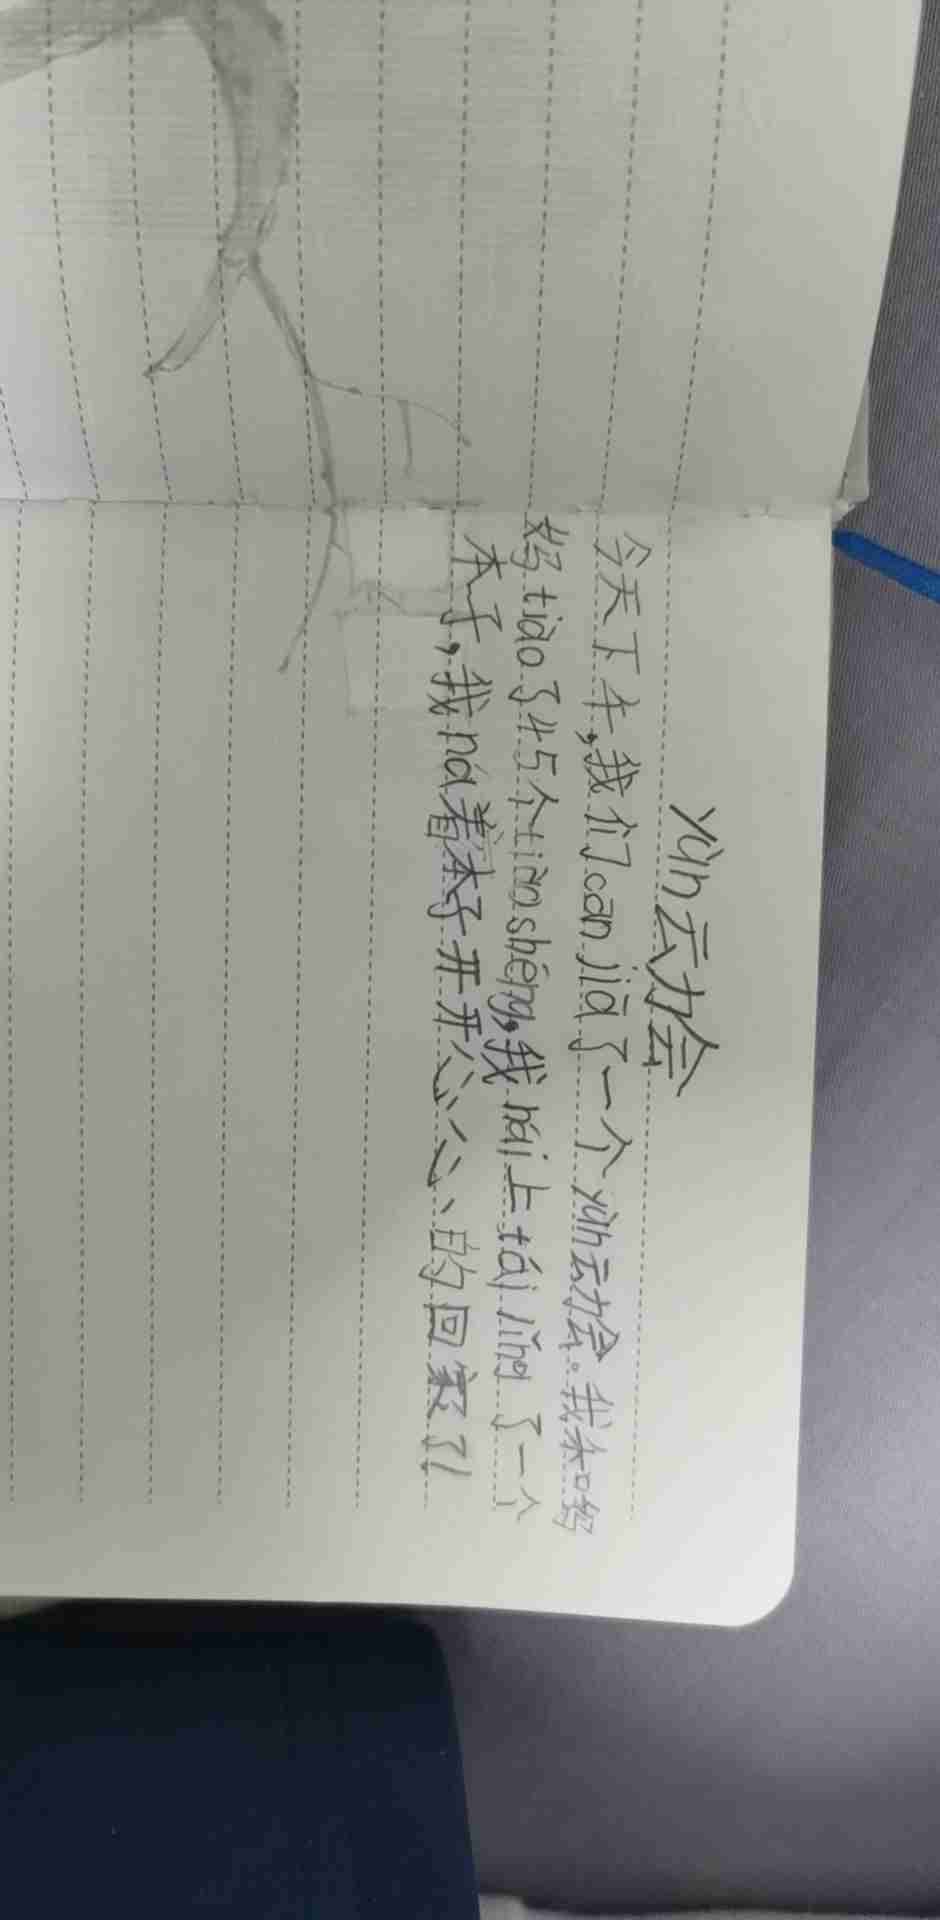 yùn动会
今天下午,我们cān jiā了一个yùn动会。我和妈
妈tiào了45个tiàoshéng,我hái上tái lǐng了一个
本子,我ná着本子开开心心的回家了!